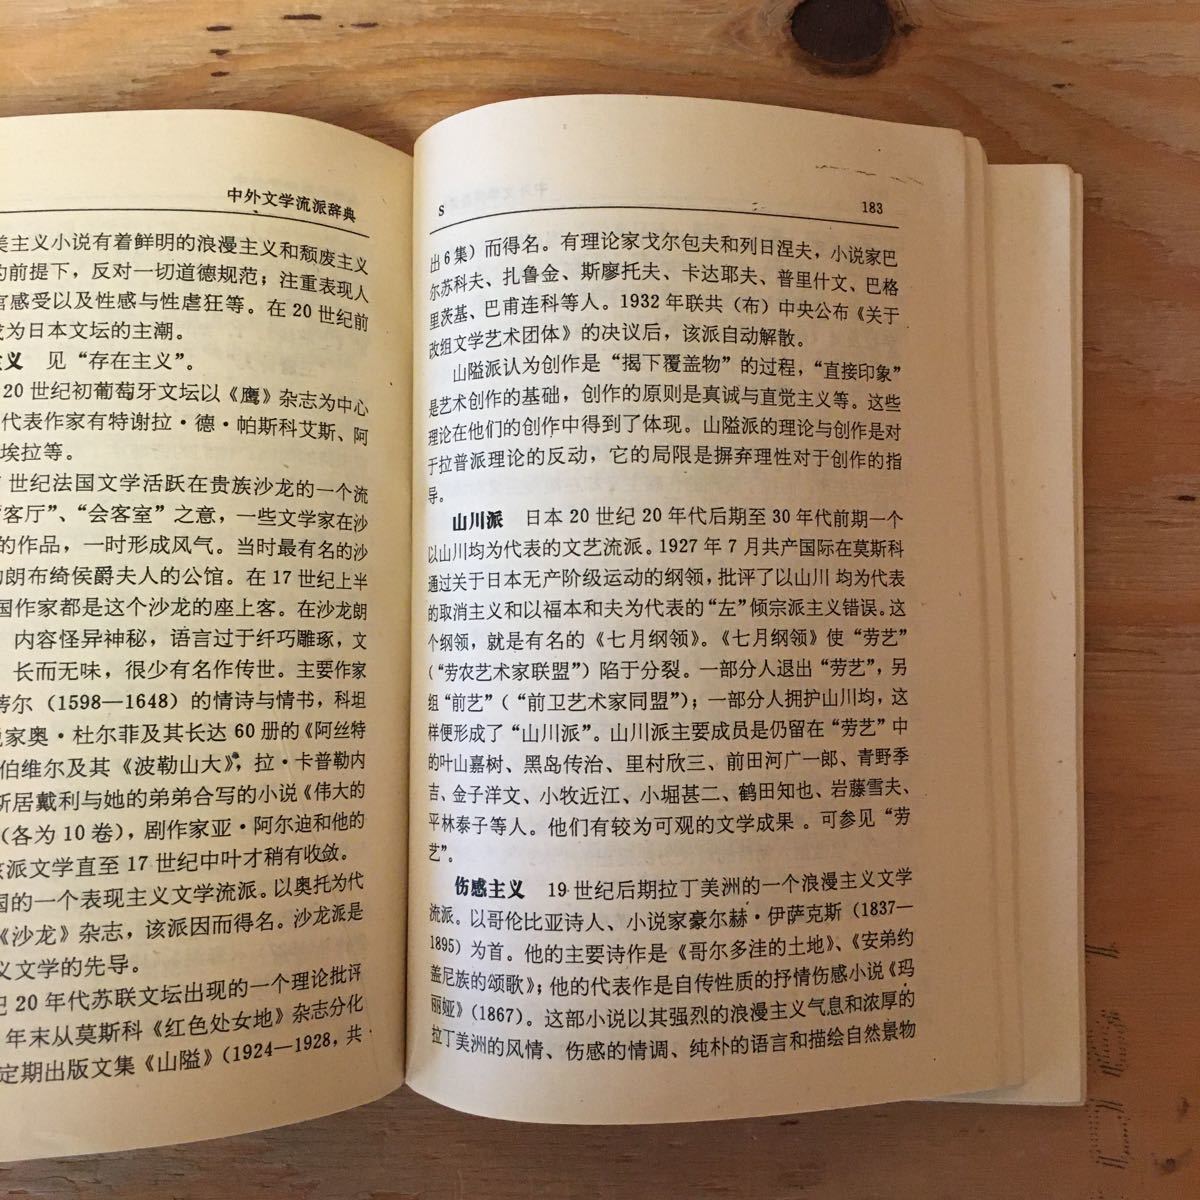 中外文学流派辞典
美主义小说有着鲜明的浪漫主义和颓废主义
的前提下，反对一切道德规范；注重表现人
官感受以及性感与性虐狂等。在 20 世纪前
成为日本文坛的主潮。
主义 见“存在主义”。
20 世纪初葡萄牙文坛以《鹰》杂志为中心
代表作家有特谢拉·德·帕斯科艾斯、阿
埃拉等。
世纪法国文学活跃在贵族沙龙的一个流
“客厅”、“会客室”之意，一些文学家在沙
的作品，一时形成风气。当时最有名的沙
的朗布绮侯爵夫人的公馆。在 17 世纪上半
国作家都是这个沙龙的座上客。在沙龙朗
内容怪异神秘，语言过于纤巧雕琢，文
长而无味，很少有名作传世。主要作家
蒂尔（1598—1648）的情诗与情书，科坦
说家奥·杜尔菲及其长达 60 册的《阿丝特
伯维尔及其《波勒山大》，拉·卡普勒内
斯居戴利与她的弟弟合写的小说《伟大的
（各为 10 卷），剧作家亚·阿尔迪和他的
该派文学直至 17 世纪中叶才稍有收敛。
国的一个表现主义文学流派。以奥托为代
《沙龙》杂志，该派因而得名。沙龙派是
义文学的先导。
纪 20 年代苏联文坛出现的一个理论批评
年末从莫斯科《红色处女地》杂志分化
定期出版文集《山隘》（1924—1928，共
S 183
出 6 集）而得名。有理论家戈尔包夫和列日涅夫，小说家巴
尔苏科夫、扎鲁金、斯廖托夫、卡达耶夫、普里什文、巴格
里茨基、巴甫连科等人。1932 年联共（布）中央公布《关于
改组文学艺术团体》的决议后，该派自动解散。
山隘派认为创作是“揭下覆盖物”的过程，“直接印象”
是艺术创作的基础，创作的原则是真诚与直觉主义等。这些
理论在他们的创作中得到了体现。山隘派的理论与创作是对
于拉普派理论的反动，它的局限是摒弃理性对于创作的指
导。
山川派 日本 20 世纪 20 年代后期至 30 年代前期一个
以山川均为代表的文艺流派。1927 年 7 月共产国际在莫斯科
通过关于日本无产阶级运动的纲领，批评了以山川 均为代表
的取消主义和以福本和夫为代表的“左”倾宗派主义错误。这
个纲领，就是有名的《七月纲领》。《七月纲领》使“劳艺”
（“劳农艺术家联盟”）陷于分裂。一部分人退出“劳艺”，另
组“前艺”（“前卫艺术家同盟”）；一部分人拥护山川均，这
样便形成了“山川派”。山川派主要成员是仍留在“劳艺”中
的叶山嘉树、黑岛传治、里村欣三、前田河广一郎、青野季
吉、金子洋文、小牧近江、小堀甚二、鹤田知也、岩藤雪夫、
平林泰子等人。他们有较为可观的文学成果 。可参见“劳
艺”。
伤感主义 19 世纪后期拉丁美洲的一个浪漫主义文学
流派。以哥伦比亚诗人、小说家豪尔赫·伊萨克斯（1837—
1895）为首。他的主要诗作是《哥尔多洼的土地》、《安弟约
盖尼族的颂歌》；他的代表作是自传性质的抒情伤感小说《玛
丽娅》（1867）。这部小说以其强烈的浪漫主义气息和浓厚的
拉丁美洲的风情、伤感的情调、纯朴的语言和描绘自然景物